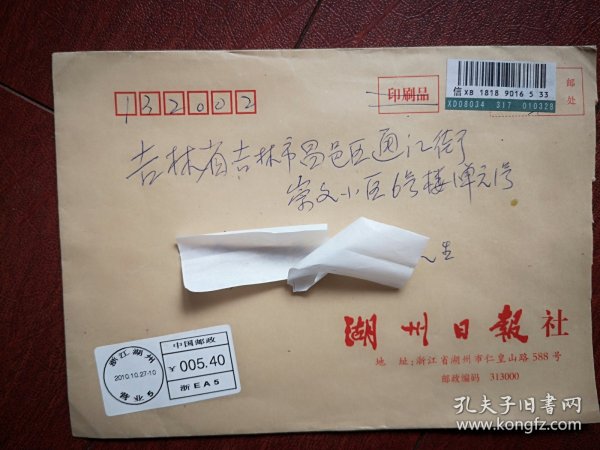 132002
印刷品
邮
处
信XB 1818 9016 5 33
X008034 317 010328
吉林省吉林市昌邑区通江街
崇文小区6号楼1单元1号
生
湖州日报社
地 址:浙江省湖州市仁皇山路588号
邮政编码 313000
浙江湖州
2010.10.27-10
营业5
中国邮政
¥ 005.40
浙EA5
孔夫子旧书网
www.kongfz.com